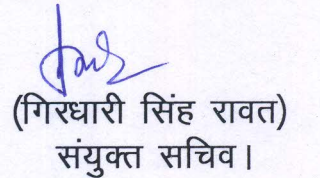 (गिरधारी सिंह रावत)
संयुक्त सचिव।